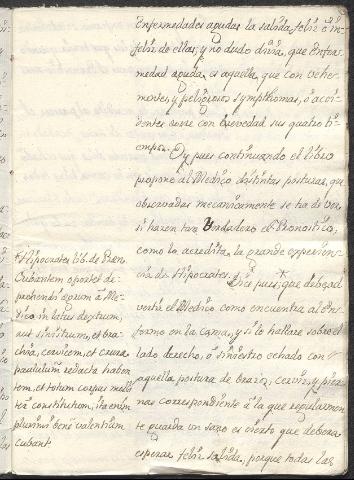 Enfermedades agudas la salida feliz ô in-
feliz de ellas; y no dudo diria, que Enfer-
medad aguda, es aquella, que con vehe-
mentes, y peligrosos symphtomas, ô acci-
dentes corre con brevedad sus quatro ti-
empos.
Oy pues continuando el libro
propone al Medico distintas posturas, que
observadas mecanicamente se ha de ver,
si hazen tiro Verdadero el Pronostico,
como lo acredita la grande experien-
cia de Hipocrates. Dice pues, que debe ad-
vertir el Medico como encuentra al En-
fermo en la cama, y si lo hallare sobre el
lado derecho, ô siniestro echado con
aquella postura de brazos, cerviz, y pier-
nas correspondiente â la que regularmen-
te guarda un sano es cierto que debera
esperar feliz salida, porque todas las
* Hipocrates lib. de Præn.
Cubantem oportet de-
prehendi ægrum â Me-
dico in latus dextrum,
aut sinistrum, et bra-
chia, cervicem, et crura
paululum reducta haben-
tem, et totum corpus molli-
ter constitutum, ita enim
plurimi bene valentium
cubant